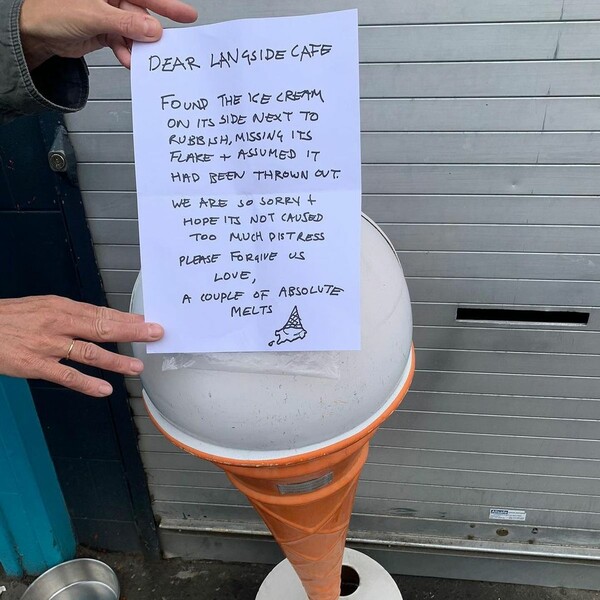 DEAR LANGSIDE CAFE
FOUND THE ICE CREAM
ON ITS SIDE NEXT TO
RUBBISH, MISSING ITS
FLAKE + ASSUMED IT
HAD BEEN THROWN OUT.
WE ARE SO SORRY +
HOPE ITS NOT CAUSED
TOO MUCH DISTRESS
PLEASE FORGIVE US
LOVE,
A COUPLE OF ABSOLUTE
MELTS